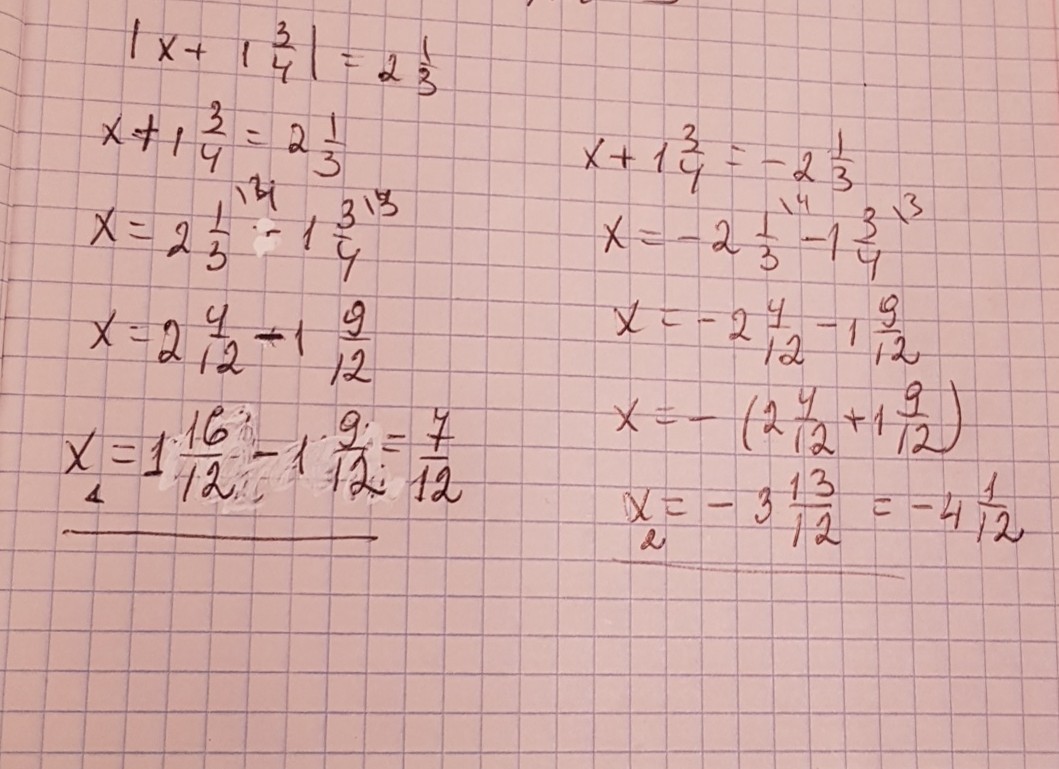 |x + 1 3/4| = 2 1/3
x + 1 3/4 = 2 1/3
x = 2 1/3 \4 - 1 3/4 \3
x = 2 4/12 - 1 9/12
x₁ = 1 16/12 - 1 9/12 = 7/12
x + 1 3/4 = - 2 1/3
x = - 2 1/3 \4 - 1 3/4 \3
x = - 2 4/12 - 1 9/12
x = - (2 4/12 + 1 9/12)
x₂ = - 3 13/12 = - 4 1/12